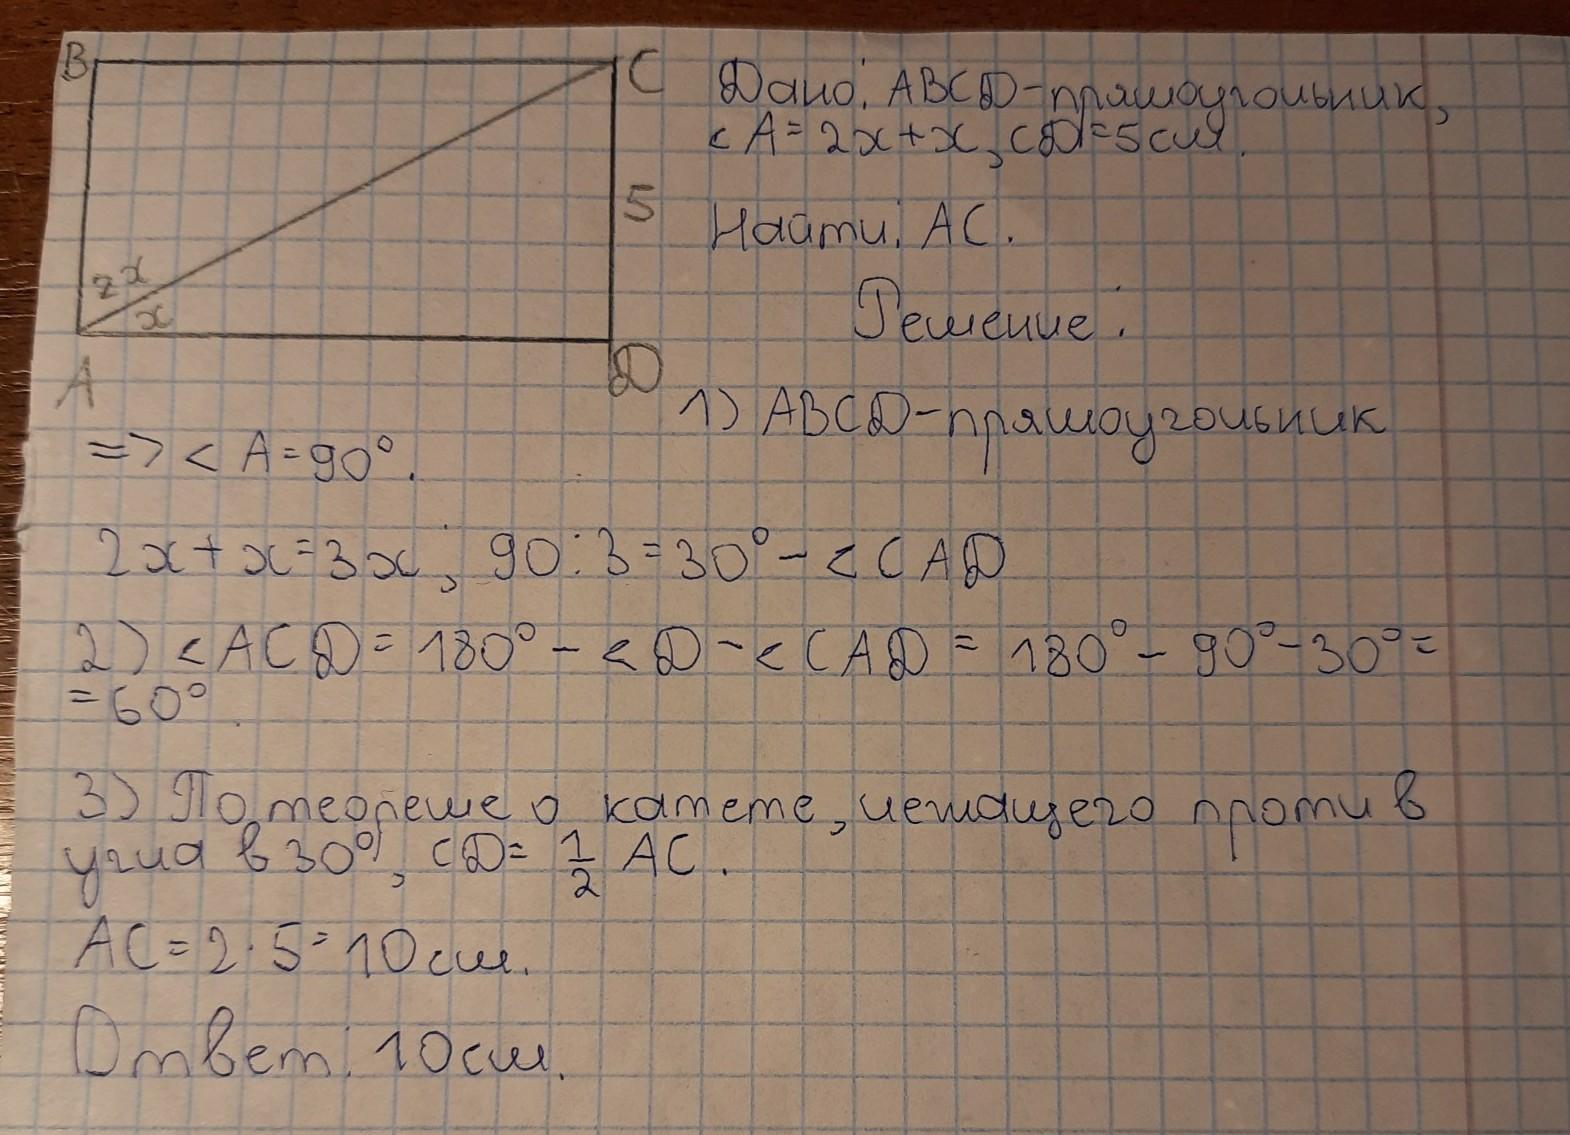 B
C
5
2x
x
A
D
Дано: ABCD-прямоугольник,
<A=2x+x, CD=5см.
Найти: AC.
Решение:
1) ABCD-прямоугольник
=> < A=90°.
2x+x=3x; 90:3=30° - <CAD
2) <ACD = 180° - <D - <CAD = 180° - 90° - 30° =
=60°.
3) По теореме о катете, лежащего против
угла в 30°, CD= 1/2 AC.
AC=2·5=10см.
Ответ: 10см.